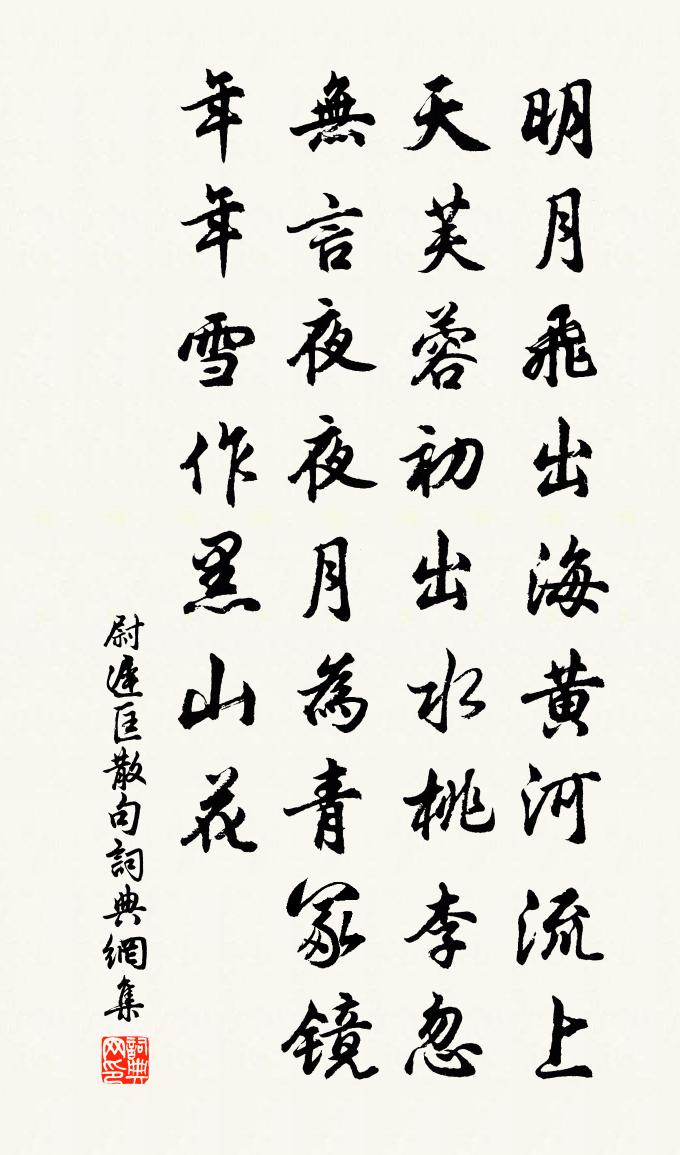 明月飛出海黄河流上
天芙蓉初出水桃李忽
無言夜夜月為青冢镜
年年雪作黑山花
尉遲匡散句詞典網集
詞典网印